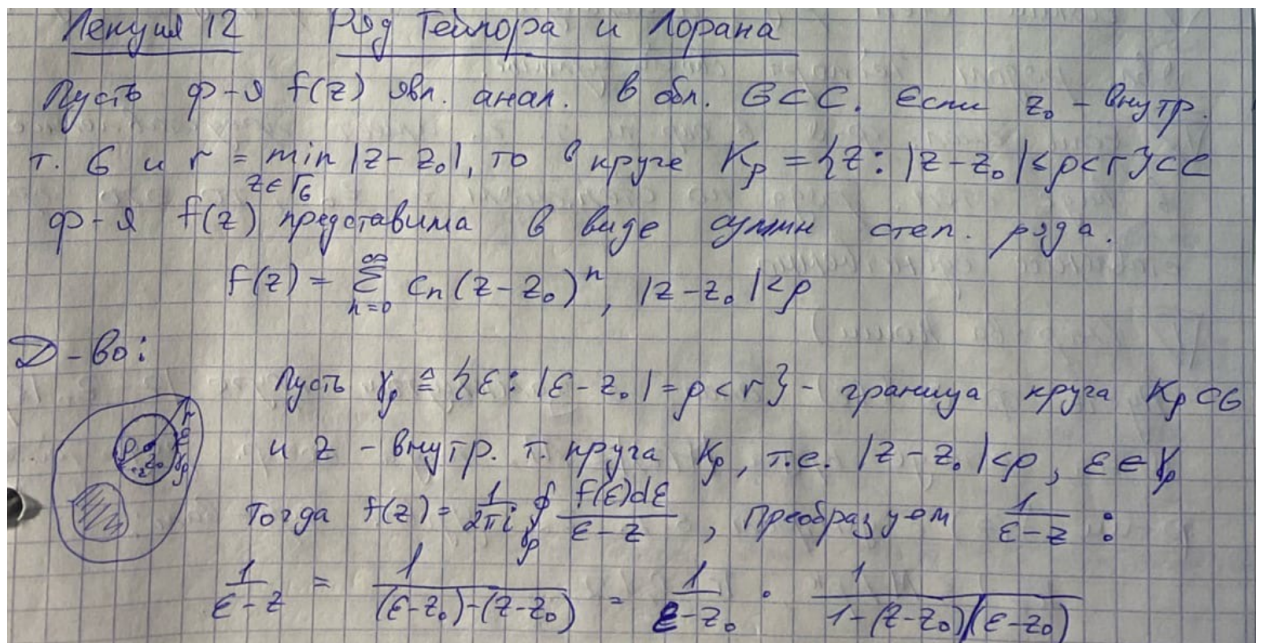 Лекция 12 Ряд Тейлора и Лорана
Пусть ф-я f(z) явл. анал. в обл. G⊂C. Если z₀ - внутр.
т. G и r = min |z-z₀|, то в круге Kρ = {z: |z-z₀|<ρ<r}⊂C
z∈Γ_G
ф-я f(z) представима в виде суммы степ. ряда.
f(z) = ∑_{n=0}^{∞} cₙ(z-z₀)ⁿ, |z-z₀|<ρ
Д-во:
Пусть γρ ≙ {ε: |ε-z₀|=ρ<r} - граница круга Kρ⊂G
и z - внутр. т. круга Kρ, т.е. |z-z₀|<ρ, ε∈γρ
Тогда f(z) = 1/2πi ∮_{γρ} f(ε)dε/(ε-z), преобразуем 1/(ε-z) :
1/(ε-z) = 1/((ε-z₀)-(z-z₀)) = 1/(ε-z₀) · 1/(1-(z-z₀)/(ε-z₀))